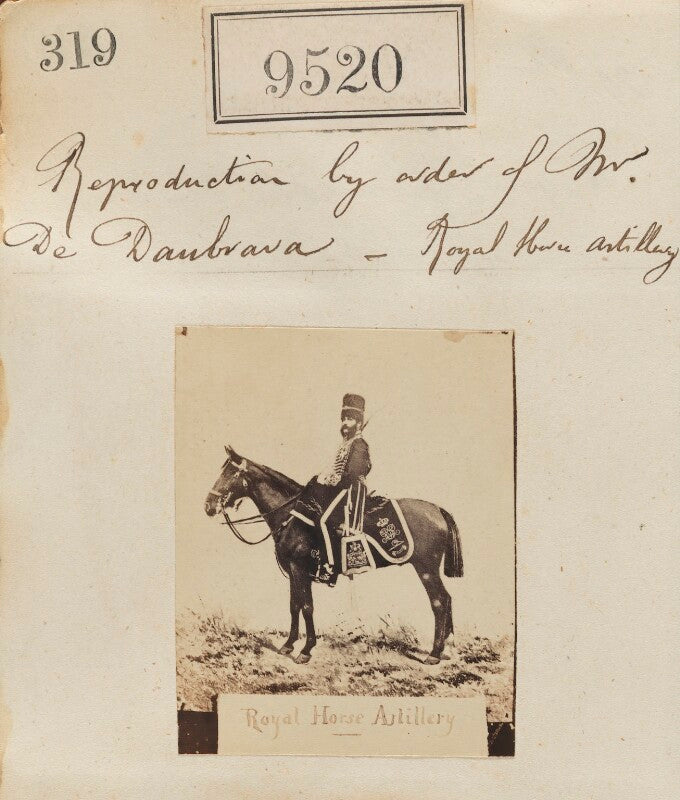 319
9520
Reproduction by order of Mr.
De Daubrava _ Royal Horse Artillery
Royal Horse Artillery